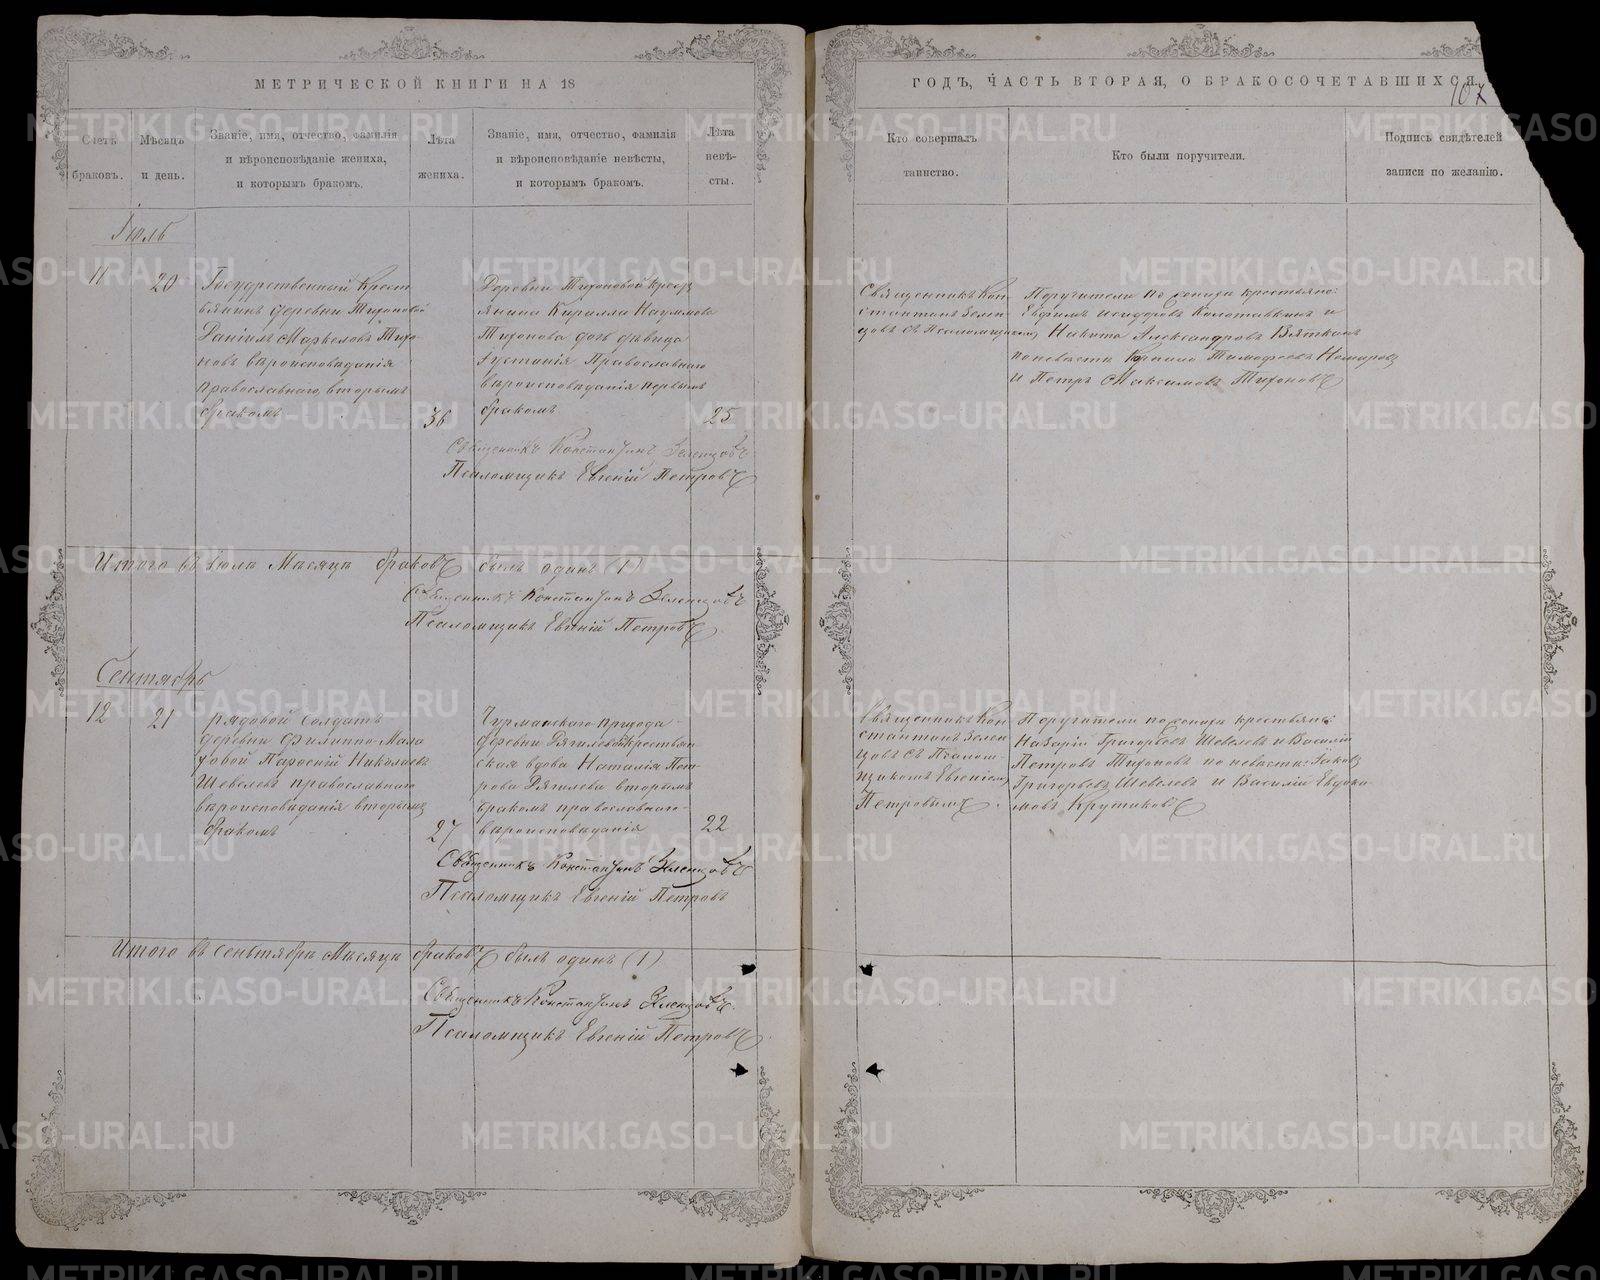 МЕТРИЧЕСКОЙ КНИГИ НА 18
Счетъ браковъ.
Мѣсяцъ и день.
Званіе, имя, отчество, фамилія
и вѣроисповѣданіе жениха,
и которымъ бракомъ.
Лѣта
жениха.
Званіе, имя, отчество, фамилія
и вѣроисповѣданіе невѣсты,
и которымъ бракомъ.
Лѣта
невѣ-
сты.
Іюль
11
20
Государственный Крест
ьянинъ деревни Тихоновой
Даніилъ Маркеловъ Тихо-
новъ вѣроисповѣданія
православнаго, вторымъ
бракомъ
36
Деревни Тихоновой крест
янина Кирилла Наумова
Тихонова дочь дѣвица
Іустинія Православнаго
вѣроисповѣданія первымъ
бракомъ
25
Священникъ Константинъ Зеленцовъ
Псаломщикъ Евгеній Петровъ
Итого въ іюлѣ Мѣсяцѣ браковъ былъ одинъ (1)
Священникъ Константинъ Зеленцовъ
Псаломщикъ Евгеній Петровъ
Сентябрь
12
21
рядовой солдатъ
деревни Филиппо-Мала
Николаевъ
Шевелевъ православнаго
вѣроисповѣданія вторымъ
бракомъ
27
прихода
деревни крестьян
ская вдова Наталія Пет
рова вторымъ
бракомъ православнаго
вѣроисповѣданія
22
Священникъ Константинъ Зеленцовъ
Псаломщикъ Евгеній Петровъ
Итого въ сентябрѣ Мѣсяцѣ браковъ былъ одинъ (1)
Священникъ Константинъ Зеленцовъ
Псаломщикъ Евгеній Петровъ
ГОДЪ, ЧАСТЬ ВТОРАЯ, О БРАКОСОЧЕТАВШИХСЯ
107
Кто совершалъ
таинство.
Кто были поручители.
Подпись свидѣтелей
записи по желанію.
Священникъ Кон
стантинъ Зелен
цовъ съ Псаломщикомъ
Поручители по женихѣ крестьяне:
Евфимъ Исидоровъ и
Никита Александровъ Вяткинъ
по невѣстѣ Тимофеевъ
и Петръ Максимовъ Тихоновъ
Священникъ Кон
стантинъ Зелен
цовъ съ Псалом
щикомъ Евгеніемъ
Петровымъ.
Поручители по женихѣ крестьяне:
Назарій Григорьевъ Шевелевъ и Василій
Петровъ Тихоновъ по невѣстѣ: Іаковъ
Григорьевъ Шевелевъ и Василій Евдоки
мовъ Крутиковъ
METRIKI.GASO-URAL.RU